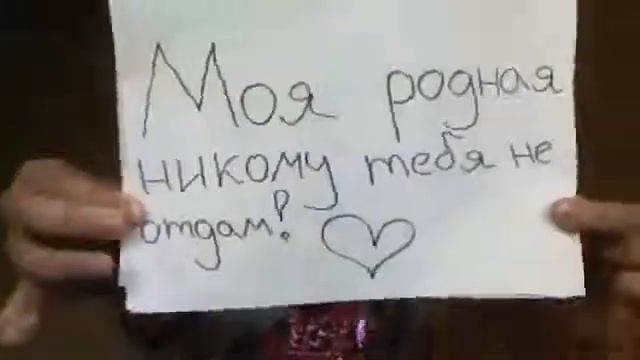 Моя родная
никому тебя не
отдам!